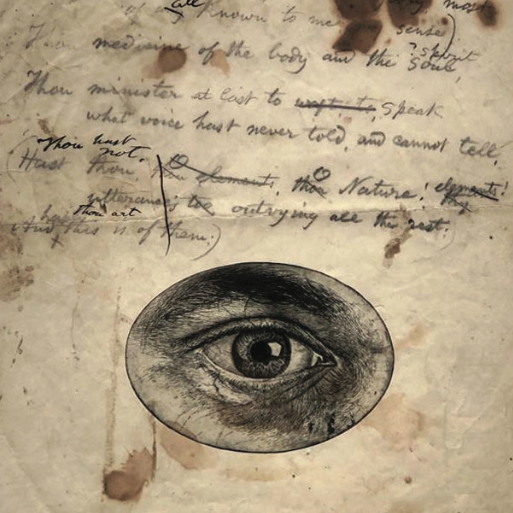 of all known to me most
sense)
Thou medicine of the body and the soul,
? spirit
Thou minister at last to speak
what voice hast never told, and cannot tell,
Thou hast
not.
(Hast Thou, elements, thou Nature! elements!
utterances outvying all the rest.
Thou art
And this is of them.)